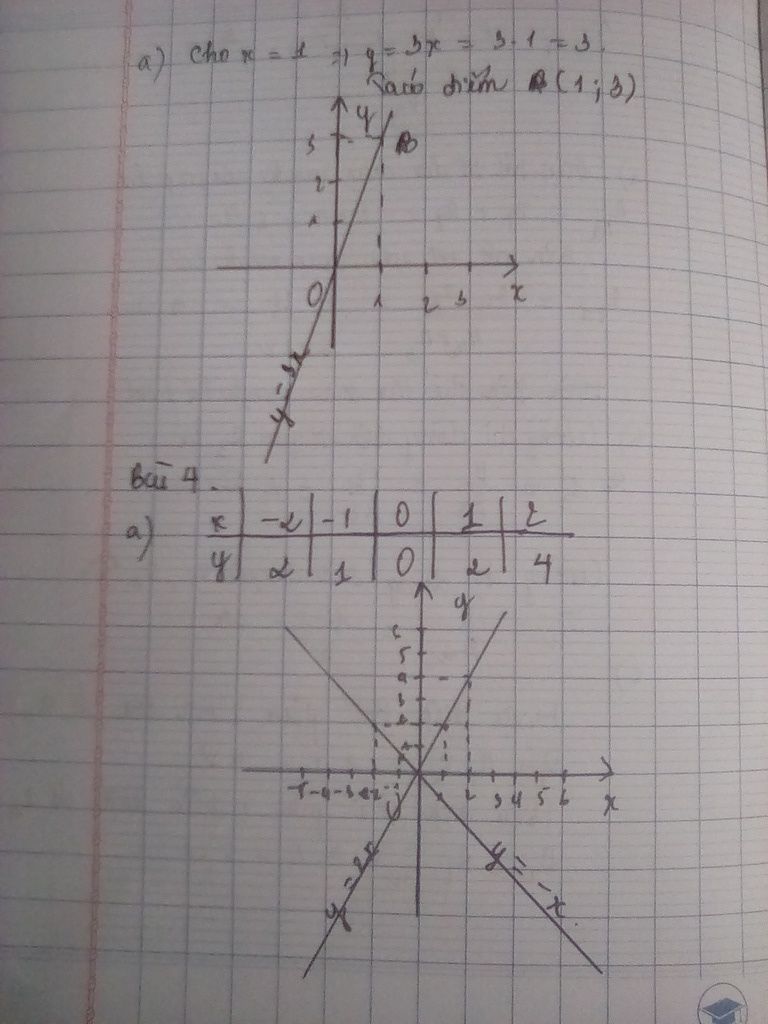 a) Cho x = 1 => y = 3x = 3.1 = 3.
Ta có điểm A(1;3)
y
3
2
1
O 1 2 3 x
y = 3x
Bài 4.
a) x -2 -1 0 1 2
y 2 1 0 2 4
y
6
5
4
3
2
1
-5 -4 -3 -2 -1 O 2 3 4 5 6 x
y = 2x
y = -x